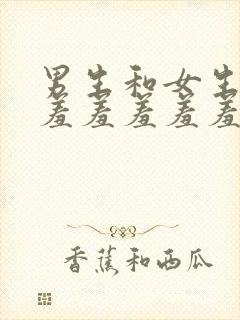 男生和女生
羞羞羞羞羞
香蕉和西瓜